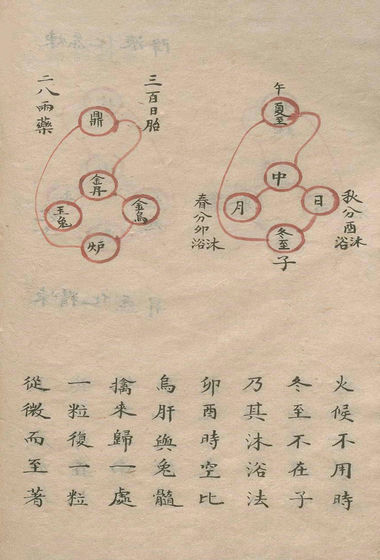 秋分酉沐浴
午
夏至
中
日
月
冬至
子
春分卯沐浴
三百日胎
鼎
金丹
金烏
玉兔
炉
二八兩藥
火候不用時
冬至不在子
乃其沐浴法
卯酉時空比
烏肝與兔髓
擒來歸一處
一粒復一粒
從微而至著